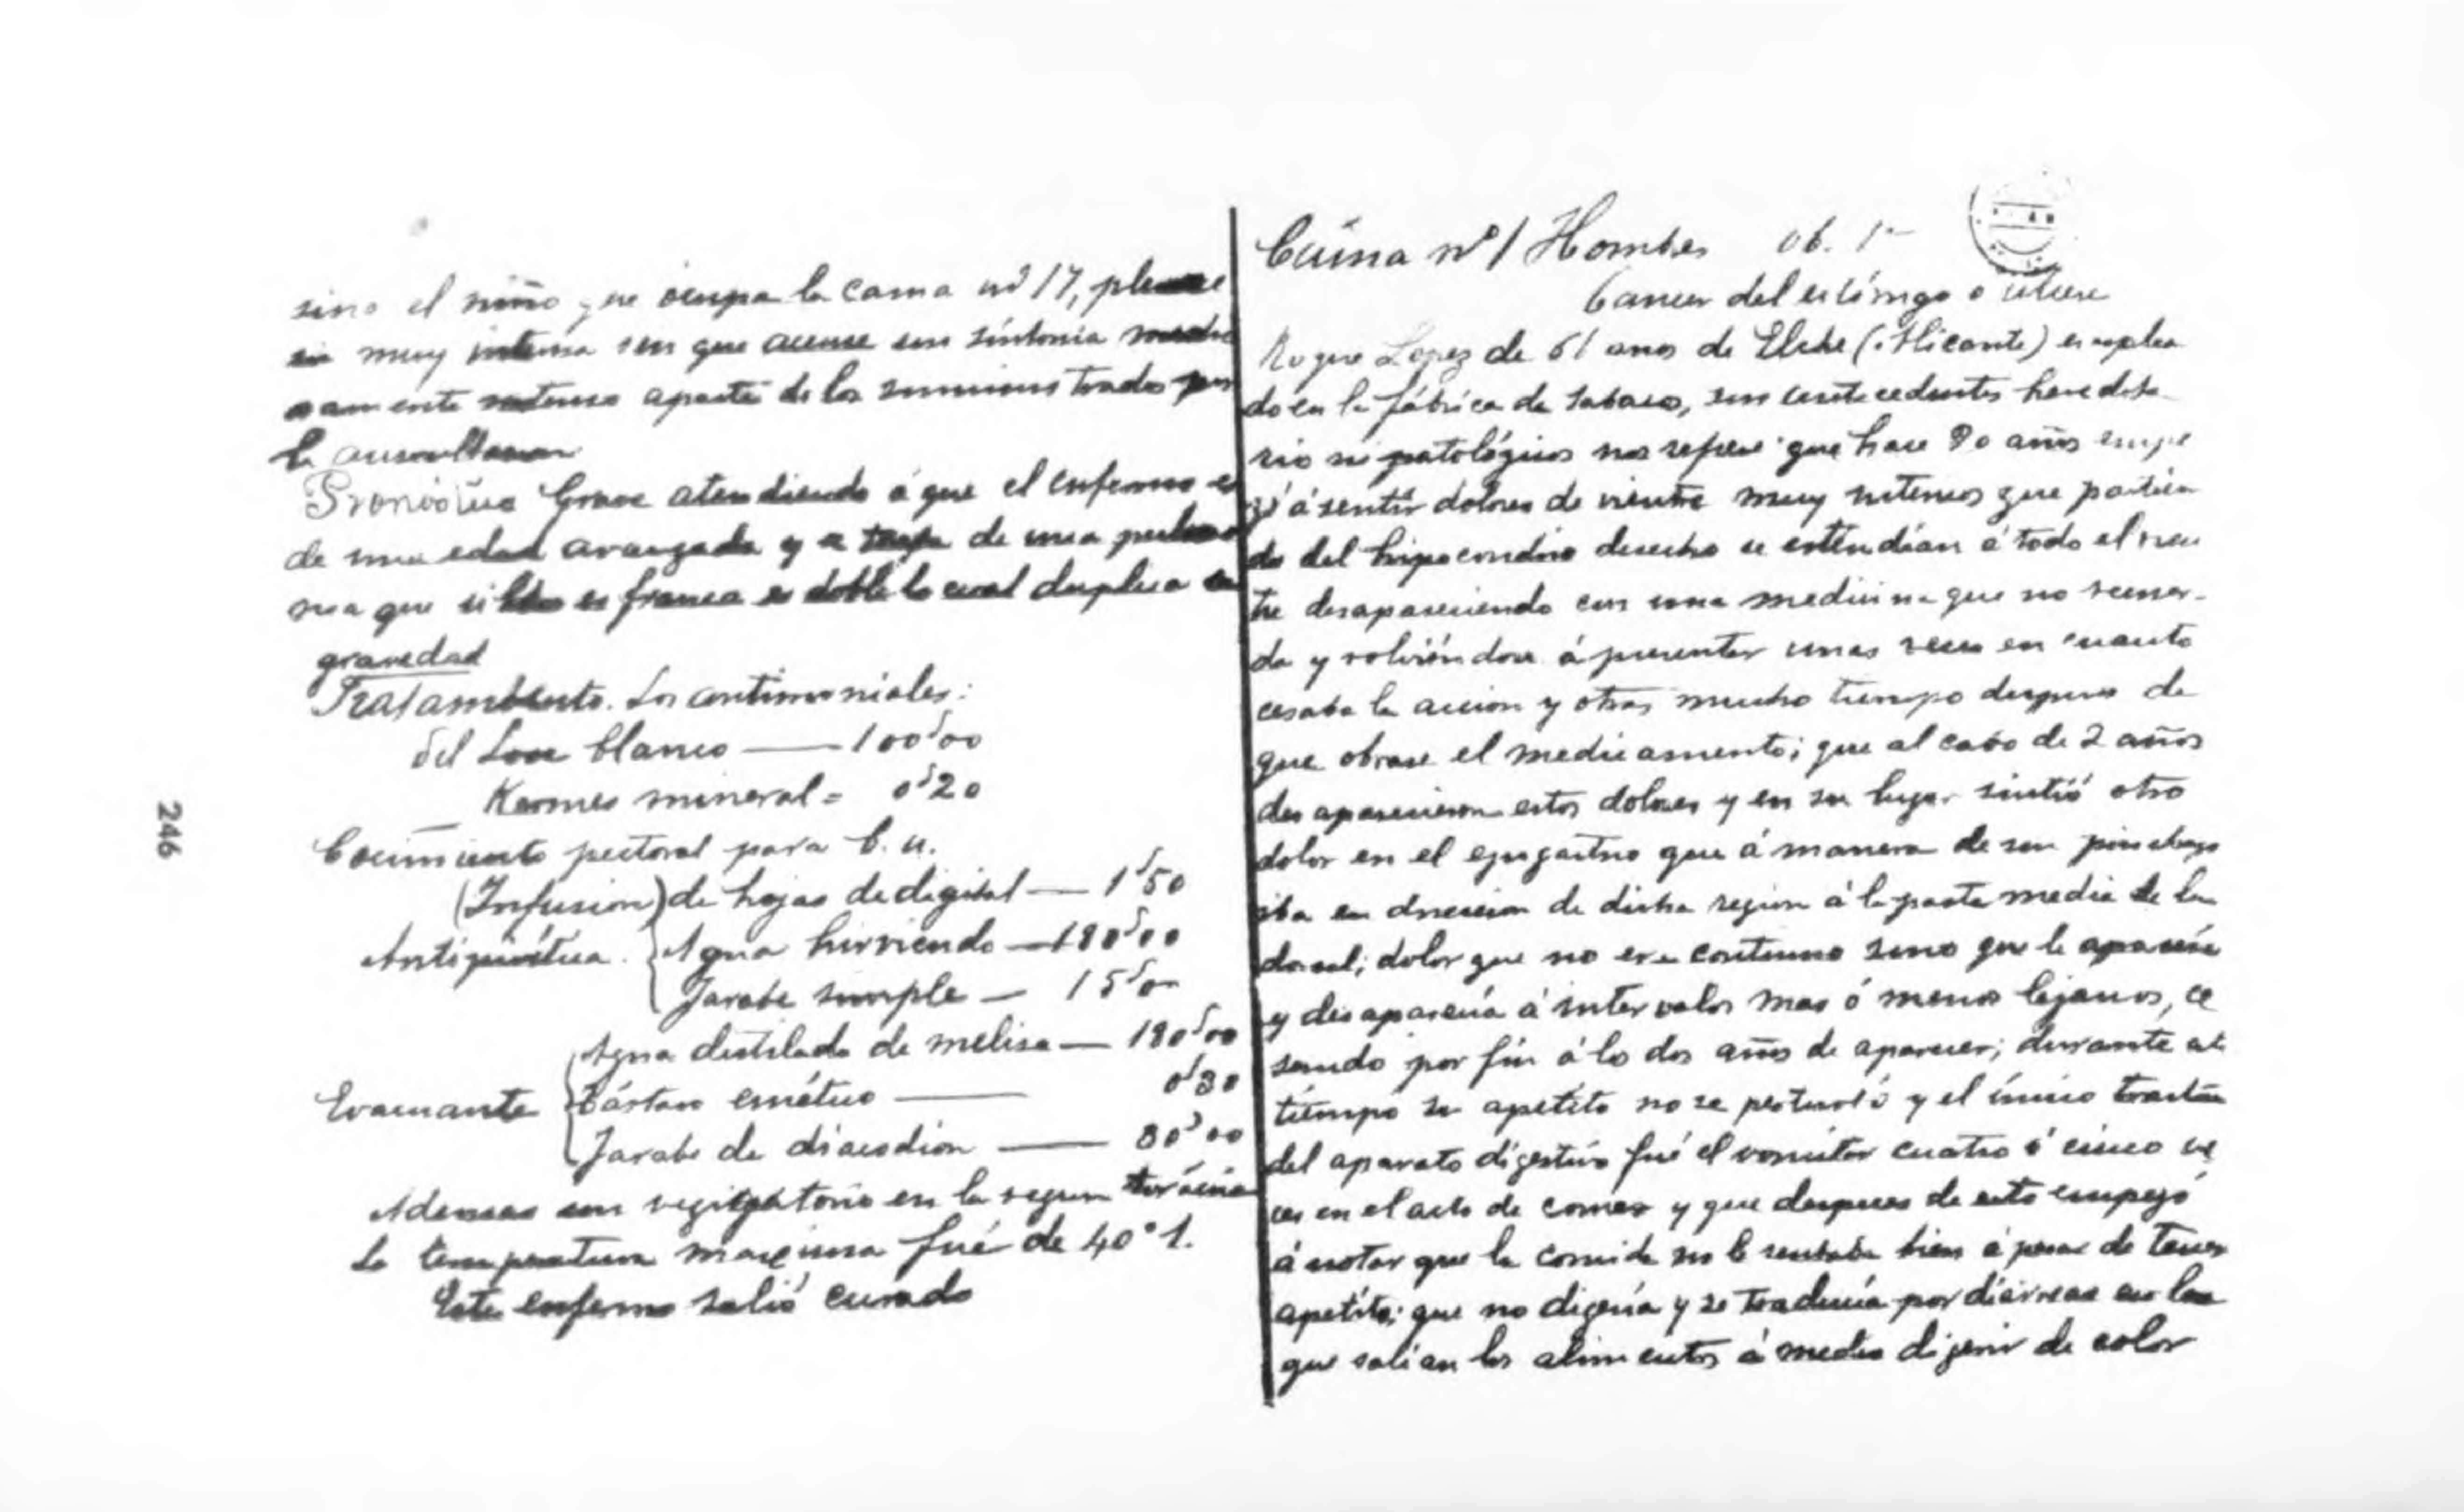 sino el niño que ocupa la cama nº 17,
muy intensa sin que acuse un síntoma
samente intenso aparte de los suministrados por
la auscultacion
Pronóstico Grave atendiendo á que el enfermo es
de una edad avanzada y se trata de una pulmo
nia que si bien es franca es doble lo cual duplica su
gravedad
Tratamiento. Los antimoniales:
del Looc blanco — 100'00
Kermes mineral = 0'20
Cocimiento pectoral para b. u.
(Infusion) de hojas de digital — 1'50
Antiquística. Agua hirviendo — 180'00
Jarabe simple — 15'00
Agua destilada de melisa — 180'00
Evacuante Tártaro emético — 0'30
Jarabe de diacodion — 30'00
Ademas un vegigatorio en la region torácica
La temperatura maxima fué de 40º1.
Este enfermo salió curado
246
Cama nº 1 Hombres Ob. 1ª
Cancer del estómago o úlcera
Roque Lopez de 61 anos de Elche (Alicante) emplea
do en la fábrica de tabacos, sin antecedentes heredita
rios ni patológicos nos refiere que hace años empe
zó á sentir dolores de vientre muy intensos que partien
do del hipocondrio derecho se estendian á todo el vien
tre desapareciendo con una medicina que no recuer-
da y volviéndose á presentar unas veces en cuanto
cesaba la accion y otras mucho tiempo despues de
que obrase el medicamento; que al cabo de 2 años
desaparecieron estos dolores y en su lugar sintió otro
dolor en el epigastrio que á manera de un pinchazo
iba en direccion de dicha region á la parte media de la
dorsal; dolor que no era continuo sino que le aparecia
y desaparecia á intervalos mas ó menos lejanos, ce
sando por fin á los dos años de aparecer; durante este
tiempo su apetito no se perturbó y el único trastorno
del aparato digestivo fué el vomitar cuatro ó cinco ve
ces en el acto de comer y que despues de esto empezó
á notar que la comida no le sentaba bien á pesar de tener
apetito; que no digeria y se traducía por diarreas en las
que salian los alimentos á medio digerir de color